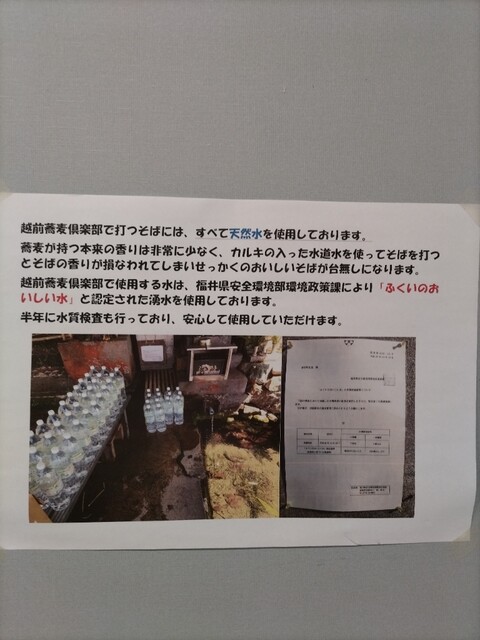 越前蕎麦倶楽部で打つそばには、すべて天然水を使用しております。
蕎麦が持つ本来の香りは非常に少なく、カルキの入った水道水を使ってそばを打つ
とそばの香りが損なわれてしまいせっかくのおいしいそばが台無しになります。
越前蕎麦倶楽部で使用する水は、福井県安全環境部環境政策課により「ふくいのお
いしい水」と認定された湧水を使用しております。
半年に水質検査も行っており、安心して使用していただけます。